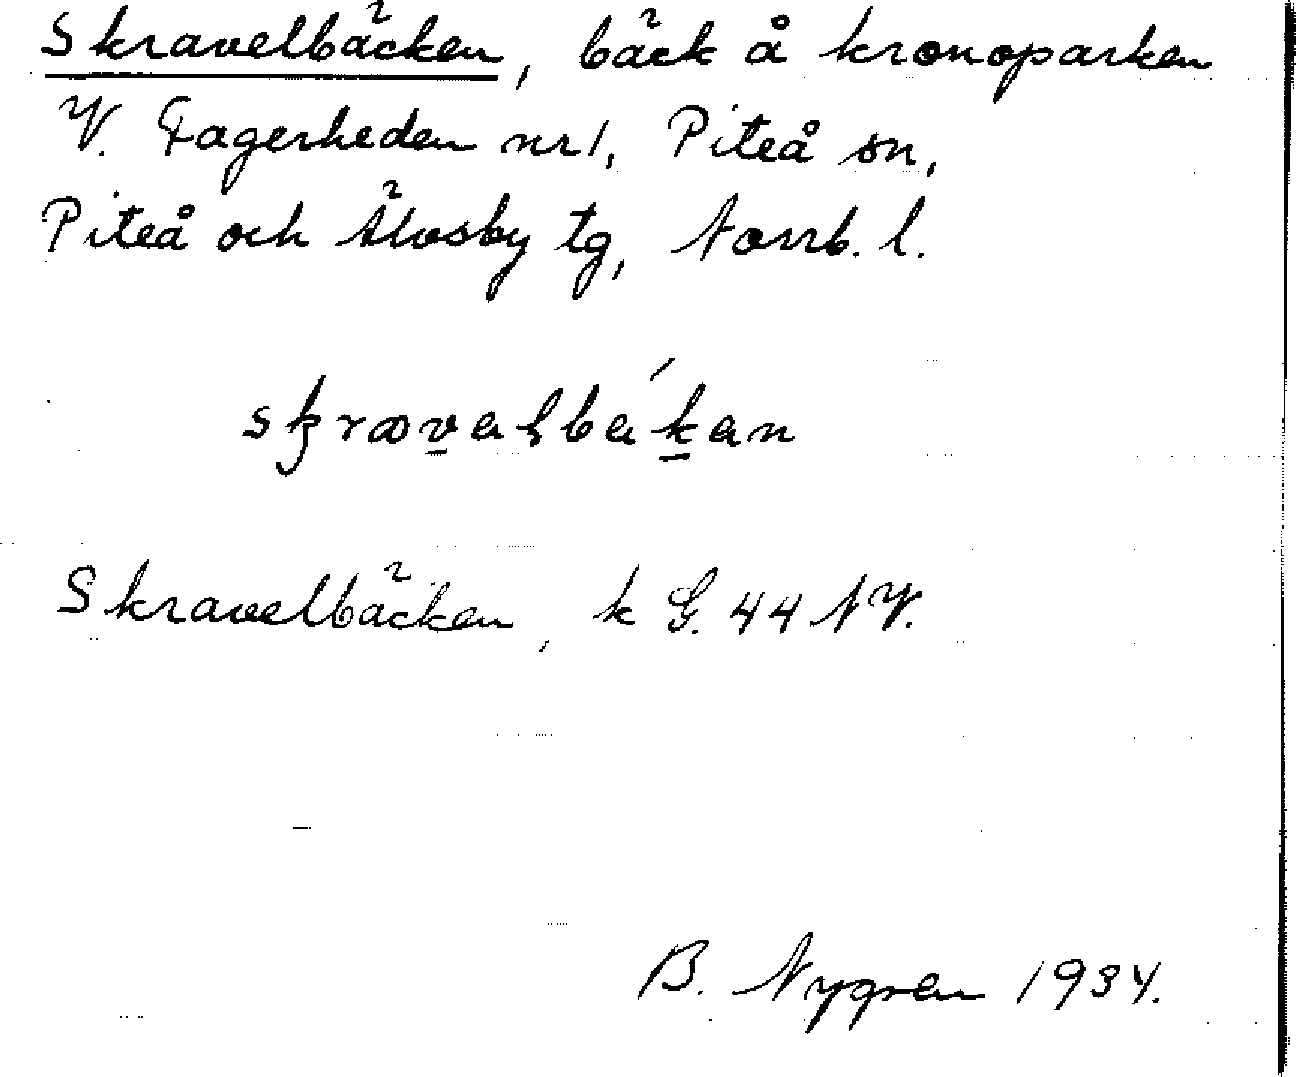 Skravelbäcken, bäck å kronoparken
V. Fagerheden nr 1, Piteå sn,
Piteå och Älvsby tg, Norrb. l.
Skravelbäcken, k G. 44 NV.
B. Nygren 1934.